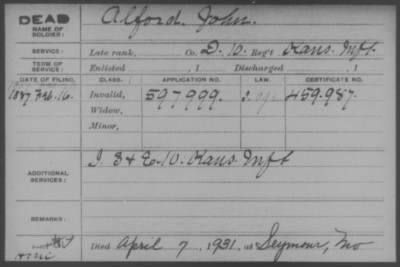 DEAD
NAME OF SOLDIER: Alford, John.
SERVICE: Late rank, Co. D. 10. Reg't Kans. Inft.
TERM OF SERVICE: Enlisted , 1 Discharged , 1
DATE OF FILING. CLASS. APPLICATION NO. LAW. CERTIFICATE NO.
1887 Feb. 16. Invalid, 597999. 459.987.
Widow,
Minor,
ADDITIONAL SERVICES: I. 3 & E. 10. Kans. Inft
REMARKS:
Died April 7, 1931, at Seymour, Mo